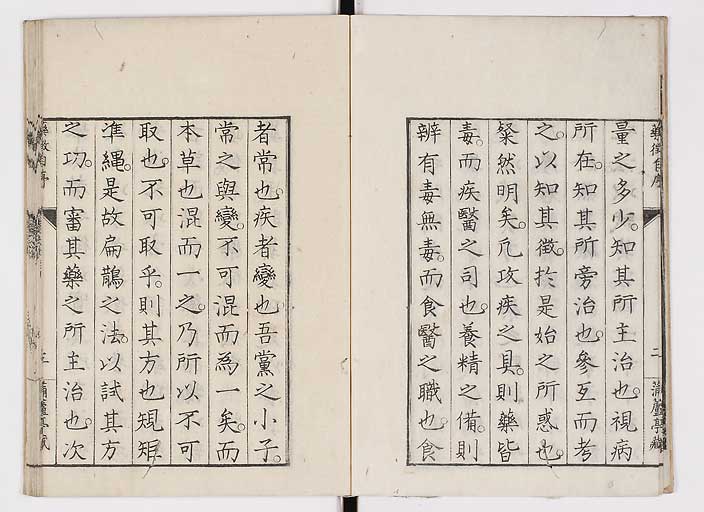 藥徵自序
二
蒲蘆亭藏
量之多少。知其所主治也。視病
所在。知其所旁治也。參互而考
之。以知其徵。於是始之所惑也。
粲然明矣。凡攻疾之具。則藥皆
毒。而疾醫之司也。養精之備。則
辨有毒無毒。而食醫之職也。食
者常也。疾者變也。吾黨之小子。
常之與變。不可混而爲一矣。而
本草也混而一之。乃所以不可
取也。不可取乎。則其方也規矩
準繩。是故扁鵲之法。以試其方
之功。而審其藥之所主治也。次
三